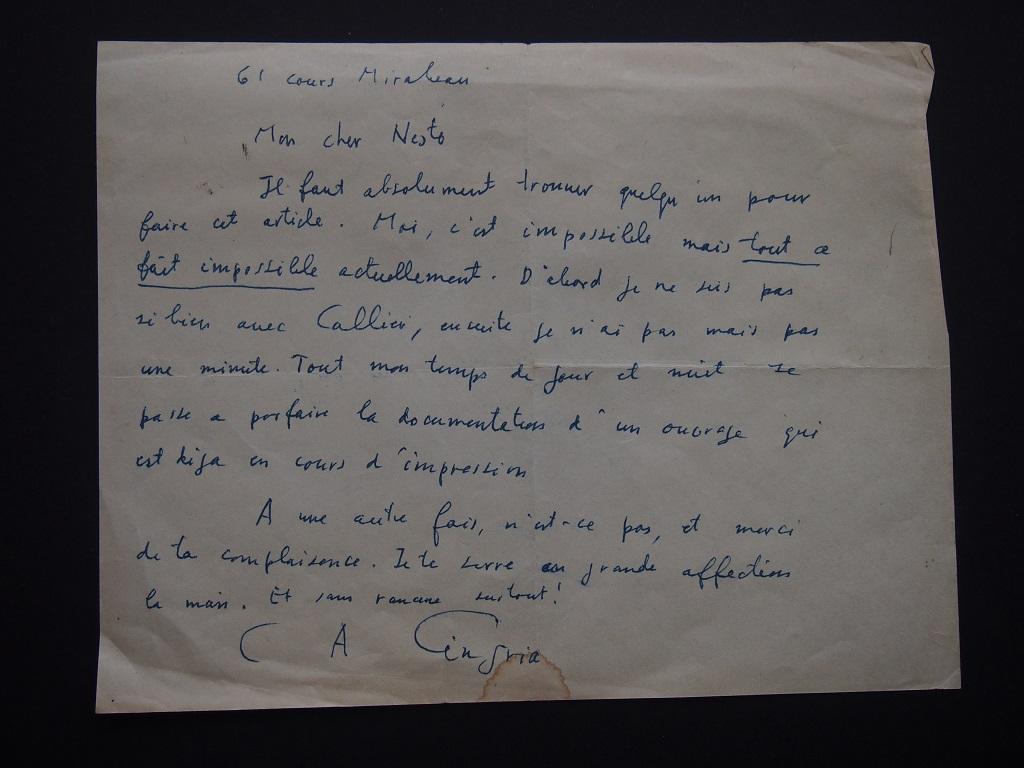 61 cours Mirabeau
Mon cher Nesto
Il faut absolument trouver quelqu'un pour
faire cet article. Moi, c'est impossible mais tout a
fait impossible actuellement. D'abord je ne suis pas
si bien avec , ensuite je n'ai pas mais pas
une minute. Tout mon temps de jour et nuit se
passe a parfaire la documentation d'un ouvrage qui
est déja en cours d'impression
A une autre fois, n'est-ce pas, et merci
de ta complaisance. Je te serre en grande affection
la main. Et sans rancune surtout!
C A Cingria